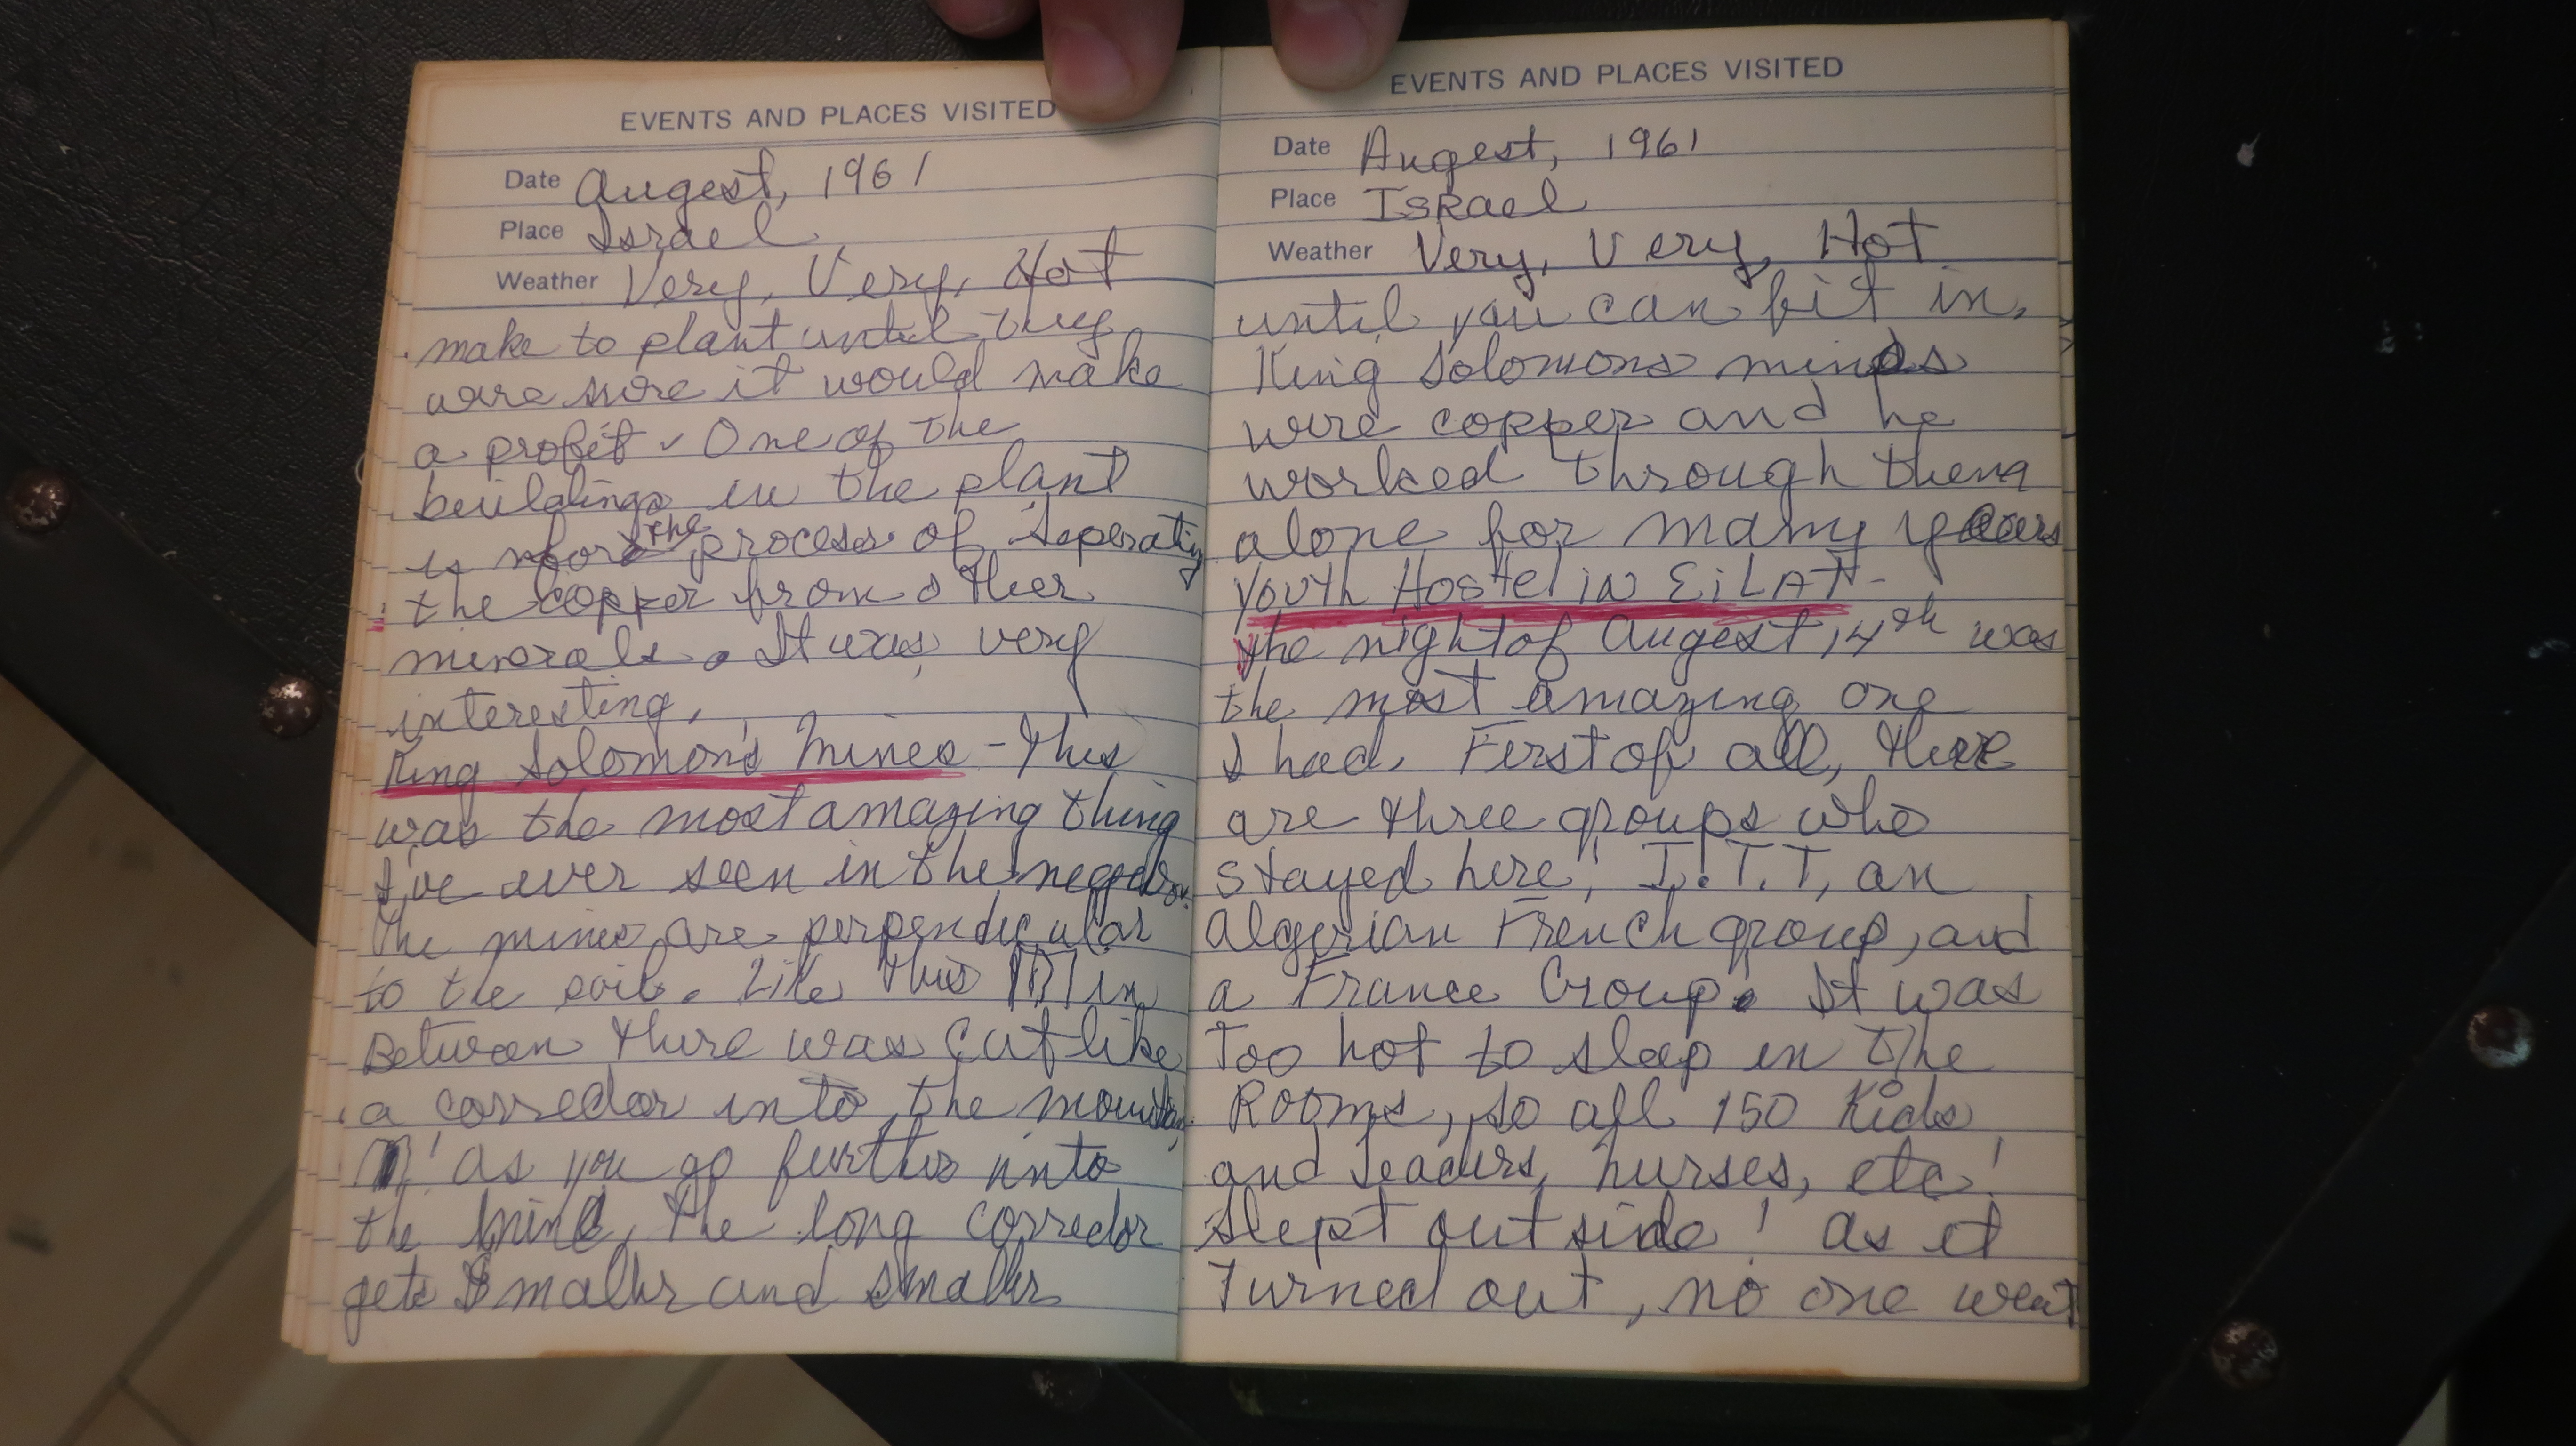 EVENTS AND PLACES VISITED
Date Augest, 1961
Place Israel
Weather Very, Very, Hot
make to plant until they
were sure it would make
a profit. One of the
buildings in the plant
is for the process of seperating
the copper from other
minerals. It was very
interesting.
King Solomon's Mines - This
was the most amazing thing
I've ever seen in the
The mines are perpendicular
to the soil. Like this in
Between there was cut like
a corredor into the mountain
As you go further into
the mine, the long corredor
gets smaller and smaller
EVENTS AND PLACES VISITED
Date Augest, 1961
Place Israel
Weather Very, Very, Hot
until you can fit in.
King Solomons mines
were copper and he
worked through them
alone for many years
Youth Hostel in EiLAT -
The night of Augest 14th was
the most amazing one
I had. First of all, there
are three groups who
stayed here, I.T.T, an
Algerian French group, and
a France Group. It was
Too hot to sleep in The
Rooms, so all 150 Kids
and leaders, nurses, etc!
Slept outside! As it
Turned out, no one went